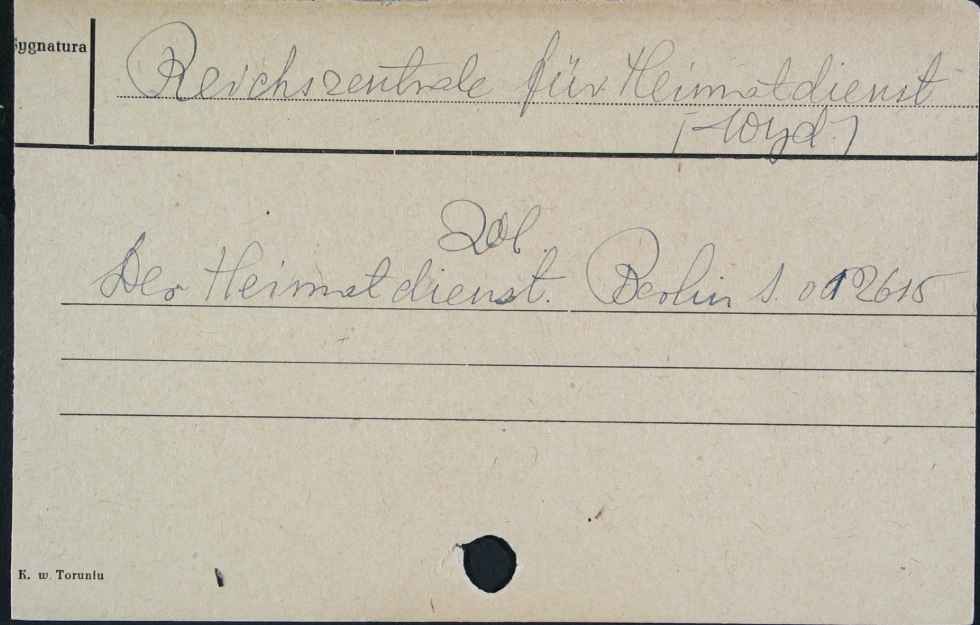 Sygnatura
Reichszentrale für Heimatdienst
(Wyd.)
Zob.
Der Heimatdienst. Berlin
K. w. Toruniu